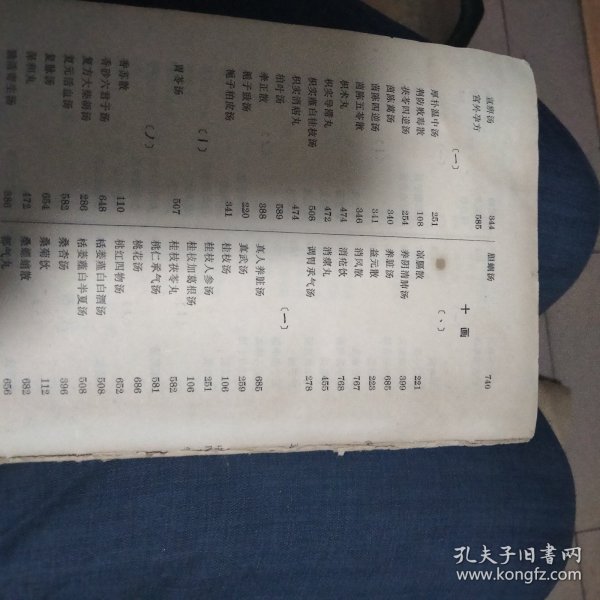 宣痹汤 344
宫外孕方 585
〔一〕
厚朴温中汤 251
荆防败毒散 108
茯苓四逆汤 254
茵陈蒿汤 340
茵陈四逆汤 341
茵陈五苓散 346
枳术丸 474
枳实导滞丸 472
枳实薤白桂枝汤 508
枳实消痞丸 474
柏叶汤 589
牵正散 388
栀子豉汤 220
栀子柏皮汤 341
〔丨〕
胃苓汤 507
〔丿〕
香苏散 110
香砂六君子汤 648
复方大柴胡汤 286
复元活血汤 582
复脉汤 654
保和丸 472
独活寄生汤
胆蛔汤 740
十画
〔、〕
凉膈散 221
养阴清肺汤 399
养脏汤 685
益元散 223
消风散 767
消疮饮 768
消瘰丸 455
调胃承气汤 278
〔一〕
真人养脏汤 685
真武汤 259
桂枝汤 106
桂枝人参汤 251
桂枝加葛根汤 106
桂枝茯苓丸 582
桃仁承气汤 581
桃花汤 686
桃红四物汤 652
栝蒌薤白白酒汤 508
栝蒌薤白半夏汤 508
桑杏汤 396
桑菊饮 112
桑螵蛸散 682
都气丸 656
孔夫子旧书网
www.kongfz.com